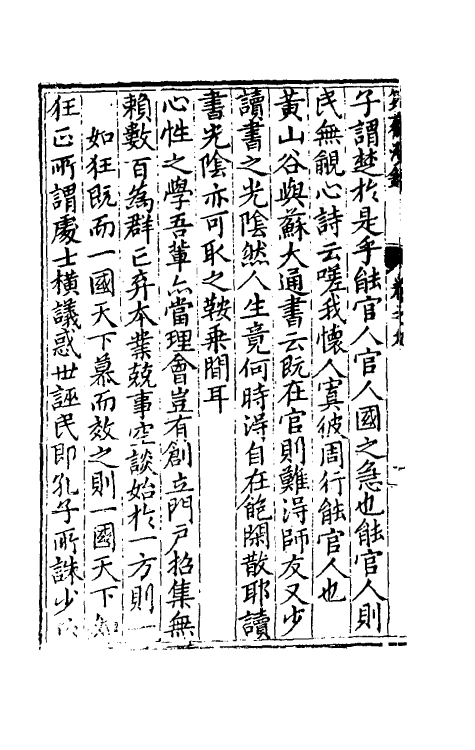 子謂楚於是乎能官人官人國之急也能官人則
民無覦心詩云嗟我懷人寘彼周行能官人也
黃山谷與蘇大通書云既在官則難得師友又少
讀書之光陰然人生竟何時得自在飽閑散耶讀
書光陰亦可取之鞍乗間耳
心性之學吾輩亦當理會豈有創立門户招集無
賴數百為群亡弃本業競事空談始於一方則一
如狂既而一國天下慕而效之則一國天下
狂正所謂處士橫議惑世誣民即孔子所誅少